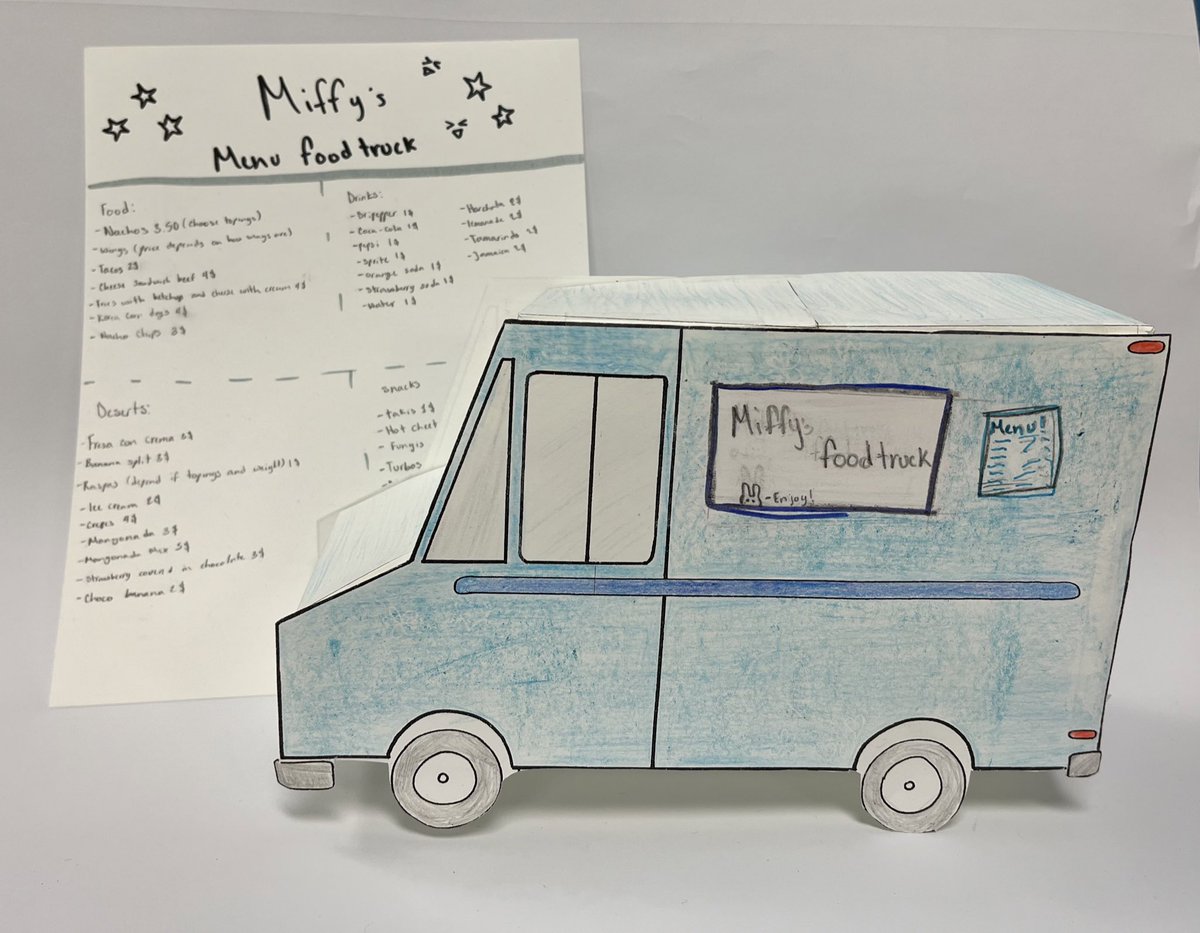 Miffy's
Menu food truck
Food:
- Nachos 3.50 (choose topings)
- Wings (price depends on how wings are)
- Tacos 2$
- Cheese Sandwich beef 4$
- Fries with ketchup and cheese with cream 4$
- Korea corn dogs 4$
- Nacho chips 3$
Drinks:
- Dr.pepper 1$
- Coca-cola 1$
- pepsi 1$
- Sprite 1$
- orange soda 1$
- strawberry soda 1$
- water 1$
- Horchata 2$
- lemonade 2$
- Tamarindo 2$
- Jamaica 2$
Deserts:
- Fresa con crema 3$
- Banana split 3$
- Raspas (depend if topings and weight) 1$
- Ice cream 2$
- Crepes 4$
- Mangonada 3$
- Mangonada Mix 5$
- Strawberry coverd in chocolate 3$
- Choco banana 2$
snacks
- takis 1$
- Hot cheet
- Fungis
- Turbos
Miffy's
food truck
- Enjoy!
Menu!